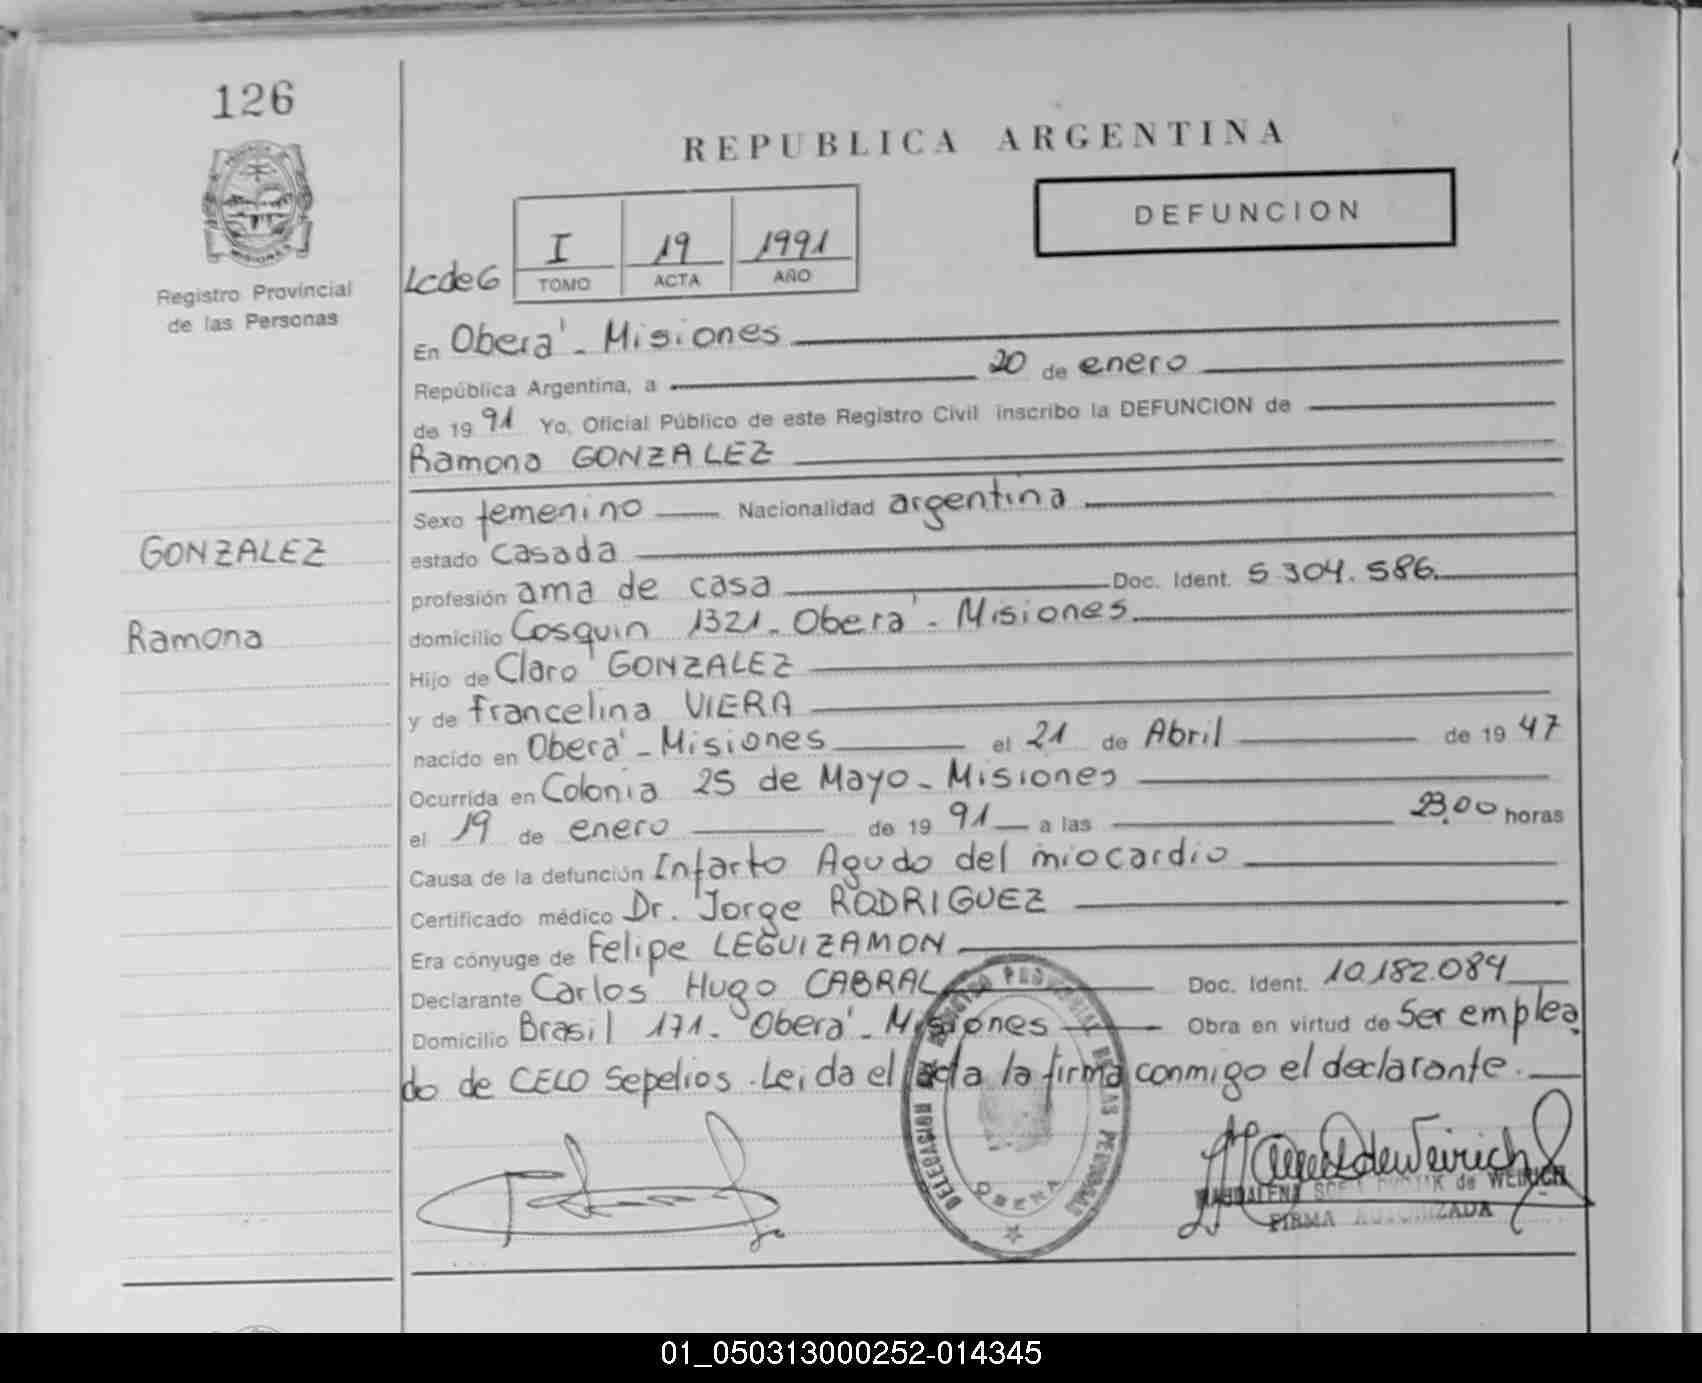 126
REPUBLICA ARGENTINA
DEFUNCION
MISIONES
Registro Provincial
de las Personas
LcdeG
I 19 1991
TOMO ACTA AÑO
En Oberá - Misiones
República Argentina, a 20 de enero
de 1991 Yo, Oficial Público de este Registro Civil inscribo la DEFUNCION de
Ramona GONZALEZ
Sexo femenino Nacionalidad argentina
GONZALEZ
estado casada
profesión ama de casa Doc. Ident. 5.304.586.
Ramona
domicilio Cosquin 1321 - Oberá - Misiones.
Hijo de Claro GONZALEZ
y de francelina VIERA
nacido en Oberá - Misiones el 21 de Abril de 1947
Ocurrida en Colonia 25 de Mayo - Misiones
el 19 de enero de 1991 a las 23,00 horas
Causa de la defunción Infarto Agudo del miocardio
Certificado médico Dr. Jorge RODRIGUEZ
Era cónyuge de Felipe LEGUIZAMON
Declarante Carlos Hugo CABRAL Doc. Ident. 10.182.084
Domicilio Brasil 171 - Oberá - Misiones Obra en virtud de Ser emplea
do de CELO Sepelios. Leida el acta la firma conmigo el declarante.
DELEGACION DEL REGISTRO PROVINCIAL DE LAS PERSONAS
OBERA
MAGDALENA de WEIRICH
FIRMA AUTORIZADA
01_050313000252-014345